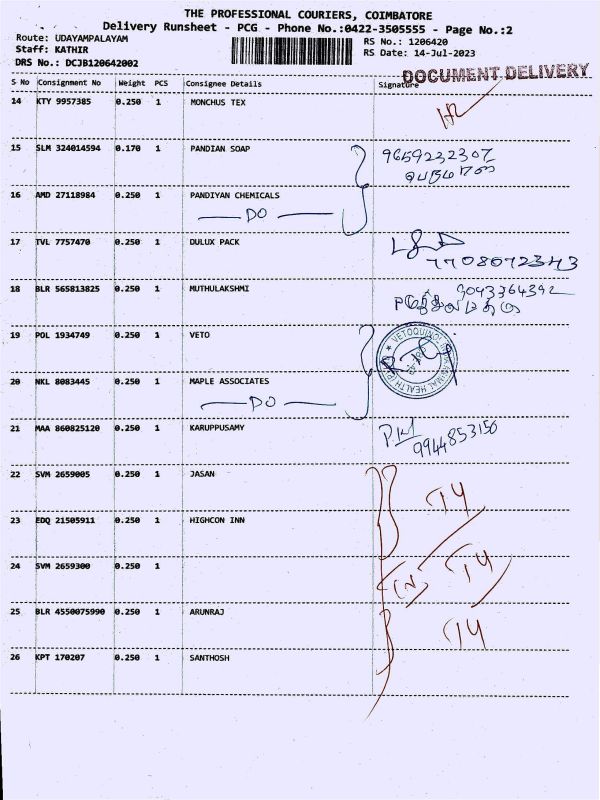 THE PROFESSIONAL COURIERS, COIMBATORE
Delivery Runsheet - PCG - Phone No.:0422-3505555 - Page No.:2
Route: UDAYAMPALAYAM
RS No.: 1206420
Staff: KATHIR
RS Date: 14-Jul-2023
DRS No.: DCJB120642002
DOCUMENT DELIVERY
S No Consignment No Weight PCS Consignee Details Signature
14 KTY 9957385 0.250 1 MONCHUS TEX
15 SLM 324014594 0.170 1 PANDIAN SOAP 9659232307
16 AMD 27118984 0.250 1 PANDIYAN CHEMICALS
DO
17 TVL 7757470 0.250 1 DULUX PACK
7708072343
18 BLR 565813825 0.250 1 MUTHULAKSHMI 9043364392
19 POL 1934749 0.250 1 VETO
20 NKL 8083445 0.250 1 MAPLE ASSOCIATES
DO
21 MAA 860825120 0.250 1 KARUPPUSAMY 9944853150
22 SVM 2659005 0.250 1 JASAN
23 EDQ 21505911 0.250 1 HIGHCON INN
24 SVM 2659300 0.250 1
25 BLR 4550075990 0.250 1 ARUNRAJ
26 KPT 170207 0.250 1 SANTHOSH